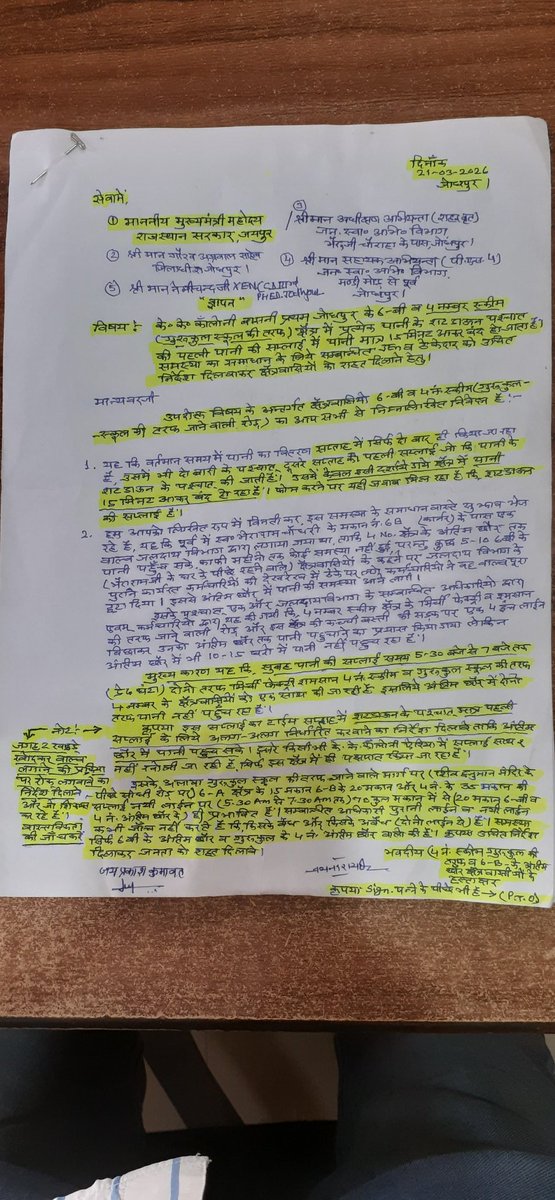 दिनाँक
21-03-2026
जोधपुर।
सेवामें,
① माननीय मुख्यमंत्री महोदय
राजस्थान सरकार, जयपुर
② श्री मान गौरव अग्रवाल साहेब
जिलाधीश जोधपुर।
③
श्रीमान अधीक्षण अभियन्ता (शहर वृत)
जन. स्वा० अभि० विभाग
के पास, जोधपुर।
④ श्री मान सहायक अभियन्ता
जन० स्वा० अभि० विभाग.
मण्डी मोड़ से पूर्व
जोधपुर।
⑤ श्री मान XEN
PHED. Jodhpur
"ज्ञापन"
विषय: के० के० कोलोनी बासनी प्रथम जोधपुर के 6-बी व 4 नम्बर स्कीम
(गुरुकुल स्कूल की तरफ) क्षेत्र में प्रत्येक पानी के शट डाऊन पश्चात
की पहली पानी की सप्लाई में पानी मात्र 15 मिनट आकर बंद हो जाता है।
समस्या का समाधान के लिये सम्बन्धित व ठेकेदार को उचित
निर्देश दिलवाकर क्षेत्रवासियों को राहत दिलाने हेतु।
मान्यवरजी
उपरोक्त विषय के अन्तर्गत क्षेत्रवासियों 6-बी व 4 नं. स्कीम (गुरुकुल-
-स्कूल की तरफ जाने वाली रोड़) का आप सभी से निम्नलिखित निवेदन है:-
1. यह कि वर्तमान समय में पानी का वितरण सप्ताह में सिर्फ दो बार ही किया जा रहा
है, उसमें भी दो बारी के पश्चात, दूसरे सप्ताह की पहली सप्लाई जो कि पानी के
शटडाऊन के पश्चात की जाती है। उसमें केवल क्षेत्र में पानी
15 मिनट आकर बंद हो रहा है। फोन करने पर यही जवाब मिल रहा है, कि शटडाऊन
की सप्लाई है।
2. हम आपको लिखित रूप में विनती कर, इस समस्या के समाधान वास्ते सुझाव भेज
रहे हैं, यह कि पूर्व में स्व० चौधरी के मकान नं. 6B (कार्नर) के पास एक
वाल्व जलदाय विभाग द्वारा लगाया गया था, ताकि 4 No. क्षेत्र के अंतिम छोर तक
पानी पहुँच सके, काफी महीनों तक कोई समस्या नहीं हुई, परन्तु कुछ 5-10 6बी के
क्षेत्रवासियों के कहने पर जलदाय विभाग के
पुराने कार्यरत कर्मचारियों की देखरेख में ठेके पर लगे कर्मचारियों ने वह वाल्व पूरा
हटा दिया। इससे अंतिम छोर में पानी की समस्या आने लगी।
इसके पश्चात, एक और जलदाय विभाग के सम्बन्धित अधिकारियों द्वारा
एवम् कर्मचारियों द्वारा यह की गयी कि, 4 नम्बर स्कीम क्षेत्र के मिर्ची फेक्ट्री व शमशान
की तरफ जाने वाली रोड़ और इस क्षेत्र की कच्ची बस्ती की सड़क पर एक 4 इंच लाईन
बिछाकर उनको अंतिम छोर तक पानी पहुंचाने का प्रयास किया गया लेकिन
अंतिम छोर में भी 10-15 घरों में पानी नहीं पहुंच रहा है।
मुख्य कारण यह कि सुबह पानी की सप्लाई समय 5-30 बजे से 7 बजे तक
(डेढ घंटा) दोनों तरफ मिर्ची फेक्ट्री शमशान 4 नं. स्कीम व गुरुकुल स्कूल की तरफ
4 नम्बर के क्षेत्रवासियों को एक साथ दी जा रही है। इसलिये अंतिम छोर में दोनों
तरफ पानी नहीं पहुंच रहा है।
नोट:→ कृपया इस सप्लाई का टाईम सप्ताह में शटडाऊन के पश्चात पहली
सप्लाई के लिये अलग-अलग निर्धारित करवाने का निर्देश दिलावें ताकि अंतिम
छोर में पानी पहुंच सके। दूसरे किसी भी के. के. कोलोनी ऐरिया में सप्लाई साथ 2
नहीं खोली जा रही है, सिर्फ इस क्षेत्र में ही पक्षपात किया जा रहा है।
जगह 2 सड़कें
खोदकर वाल्व
लगाने की प्रक्रिया
पर रोक लगाने का
निर्देश दिलाने
और जो शिकायत
कर रहे हैं।
वास्तविकता
की जाँच करें
इसके अलावा गुरुकुल स्कूल की तरफ जाने वाले मार्ग पर (हनुमान मंदिर के
पीछे सीधी रोड पर) 6-A क्षेत्र के 15 मकान 6-B के 20 मकान और 4 नं. के 35 मकान की
सप्लाई नयी लाईन पर (5-30 Am से 7-30 Am तक) 70 कुल मकान में से (20 मकान 6-बी व
4 नं. अंतिम छोर के) ही प्रभावित हैं। सम्बन्धित अधिकारी पुरानी लाईन व नयी लाईन
कभी जाँच नहीं करते हैं कि किसके वैध और किसके अवैध (दोनों लाईन से) हैं। समस्या
सिर्फ 6 बी के अंतिम छोर व गुरुकुल के 4 नं. अंतिम छोर वालों की है। कृपया उचित निर्देश
दिलाकर जनता को राहत दिलावें।
भवदीय (4 नं. स्कीम गुरुकुल की
तरफ व 6-B. के अंतिम
छोर क्षेत्रवासियों के
हस्ताक्षर
जय प्रकाश कुमावत
कृपया Sign. पन्ने के पीछे भी है → (P.T.O)